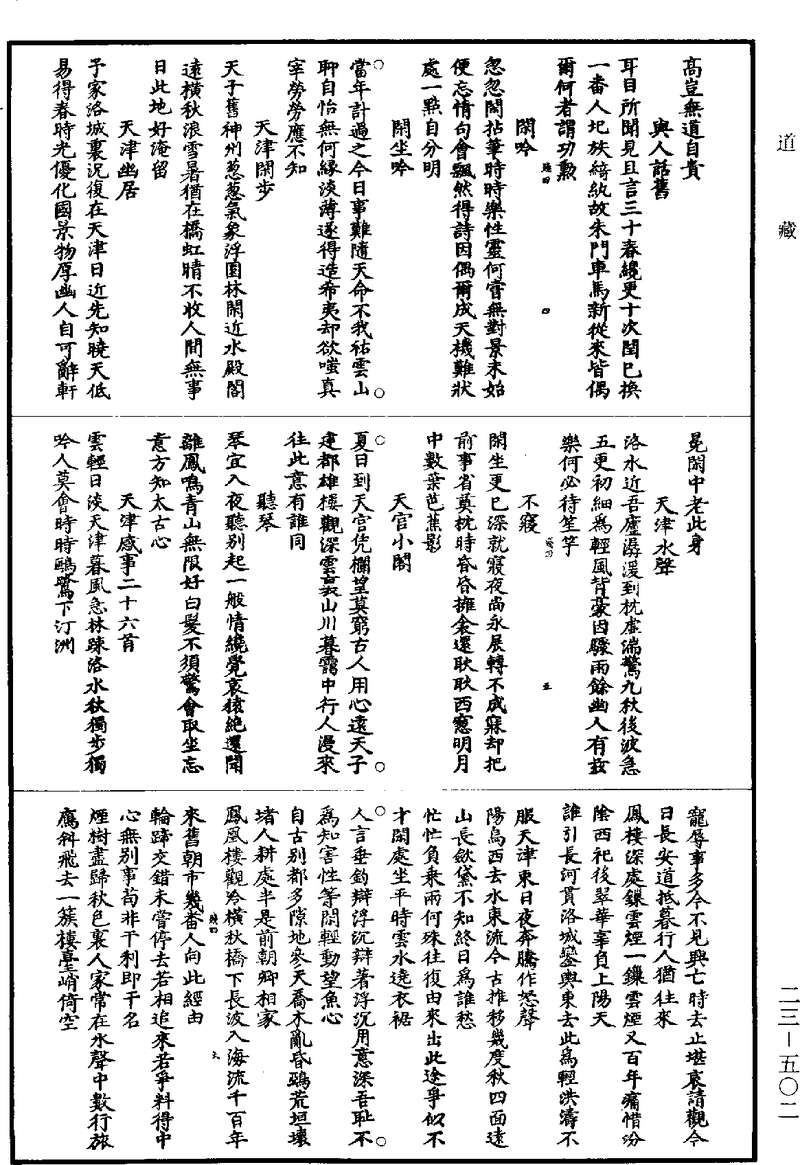 道藏
高豈無道自貴
與人話舊
耳目所聞見且言三十春纔更十次閏已換
一番人圯族綺紈故朱門車馬新從來皆偶
爾何者謂功勳
閑吟
忽忽閑拈筆時時樂性靈何嘗無對景未始
便忘情句會飄然得詩因偶爾成天機難狀
處一點自分明
閑坐吟
當年計過之今日事難隨天命不我祐雲山
聊自怡無何緣淡薄遂得造希夷却欲嗤真
宰勞勞應不知
天津閑步
天子舊神州葱葱氣象浮園林閑近水殿閣
遠橫秋浪雪暑猶在橋虹晴不收人間無事
日此地好淹留
天津幽居
予家洛城裏況復在天津日近先知曉天低
易得春時光優化國景物厚幽人自可辭軒
冕閑中老此身
天津水聲
洛水近吾廬潺湲到枕虛湍驚九秋後波急
五更初細為輕風背豪因驟雨餘幽人有玆
樂何必待笙竽
不寢
閑坐更已深就寢夜尚永展轉不成寐却把
前事省奠枕時昏昏擁衾還耿耿西窻明月
中數葉芭蕉影
天宮小閣
夏日到天宮凭欄望莫窮古人用心遠天子
建都雄樓觀深雲裏山川暮靄中行人漫來
往此意有誰同
聽琴
琴宜入夜聽别起一般情纔覺哀猿絶還聞
離鳳鳴青山無限好白髮不須驚會取坐忘
意方知太古心
天津感事二十六首
雲輕日淡天津暮風急林踈洛水秋獨步獨
吟人莫會時時鷗鷺下汀洲
寵辱事多今不見興亡時去止堪哀請觀今
日長安道抵暮行人猶往來
鳳樓深處鏁雲煙一鏁雲煙又百年痛惜汾
陰西祀後翠華辜負上陽天
誰引長河貫洛城鑾輿東去此為輕洪濤不
服天津東日夜奔騰作怒聲
陽烏西去水東流今古推移幾度秋四面遠
山長斂黛不知終日為誰愁
忙忙負乘兩何殊往復由來出此途爭似不
才閑處坐平時雲水遶衣裾
人言垂釣辯浮沉辯著浮沉用意深吾耻不
為知害性等閑輕動望魚心
自古别都多隙地參天喬木亂昏鴉荒垣壞
堵人耕處半是前朝卿相家
鳳凰樓觀冷橫秋橋下長波入海流千百年
來舊朝市幾番人向此經由
輪蹄交錯未嘗停去若相追來若爭料得中
心無别事苟非干利即干名
煙樹盡歸秋色裏人家常在水聲中數行旅
鴈斜飛去一簇樓臺峭倚空
二三—五〇二